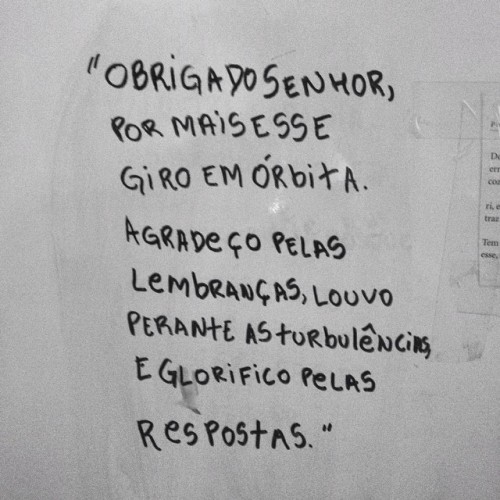 "OBRIGADO SENHOR,
POR MAIS ESSE
GIRO EM ÓRBITA.
AGRADEÇO PELAS
LEMBRANÇAS, LOUVO
PERANTE AS TURBULÊNCIAS,
E GLORIFICO PELAS
RESPOSTAS."
De
ern
coa
ri, e
traz
Tem
esse,